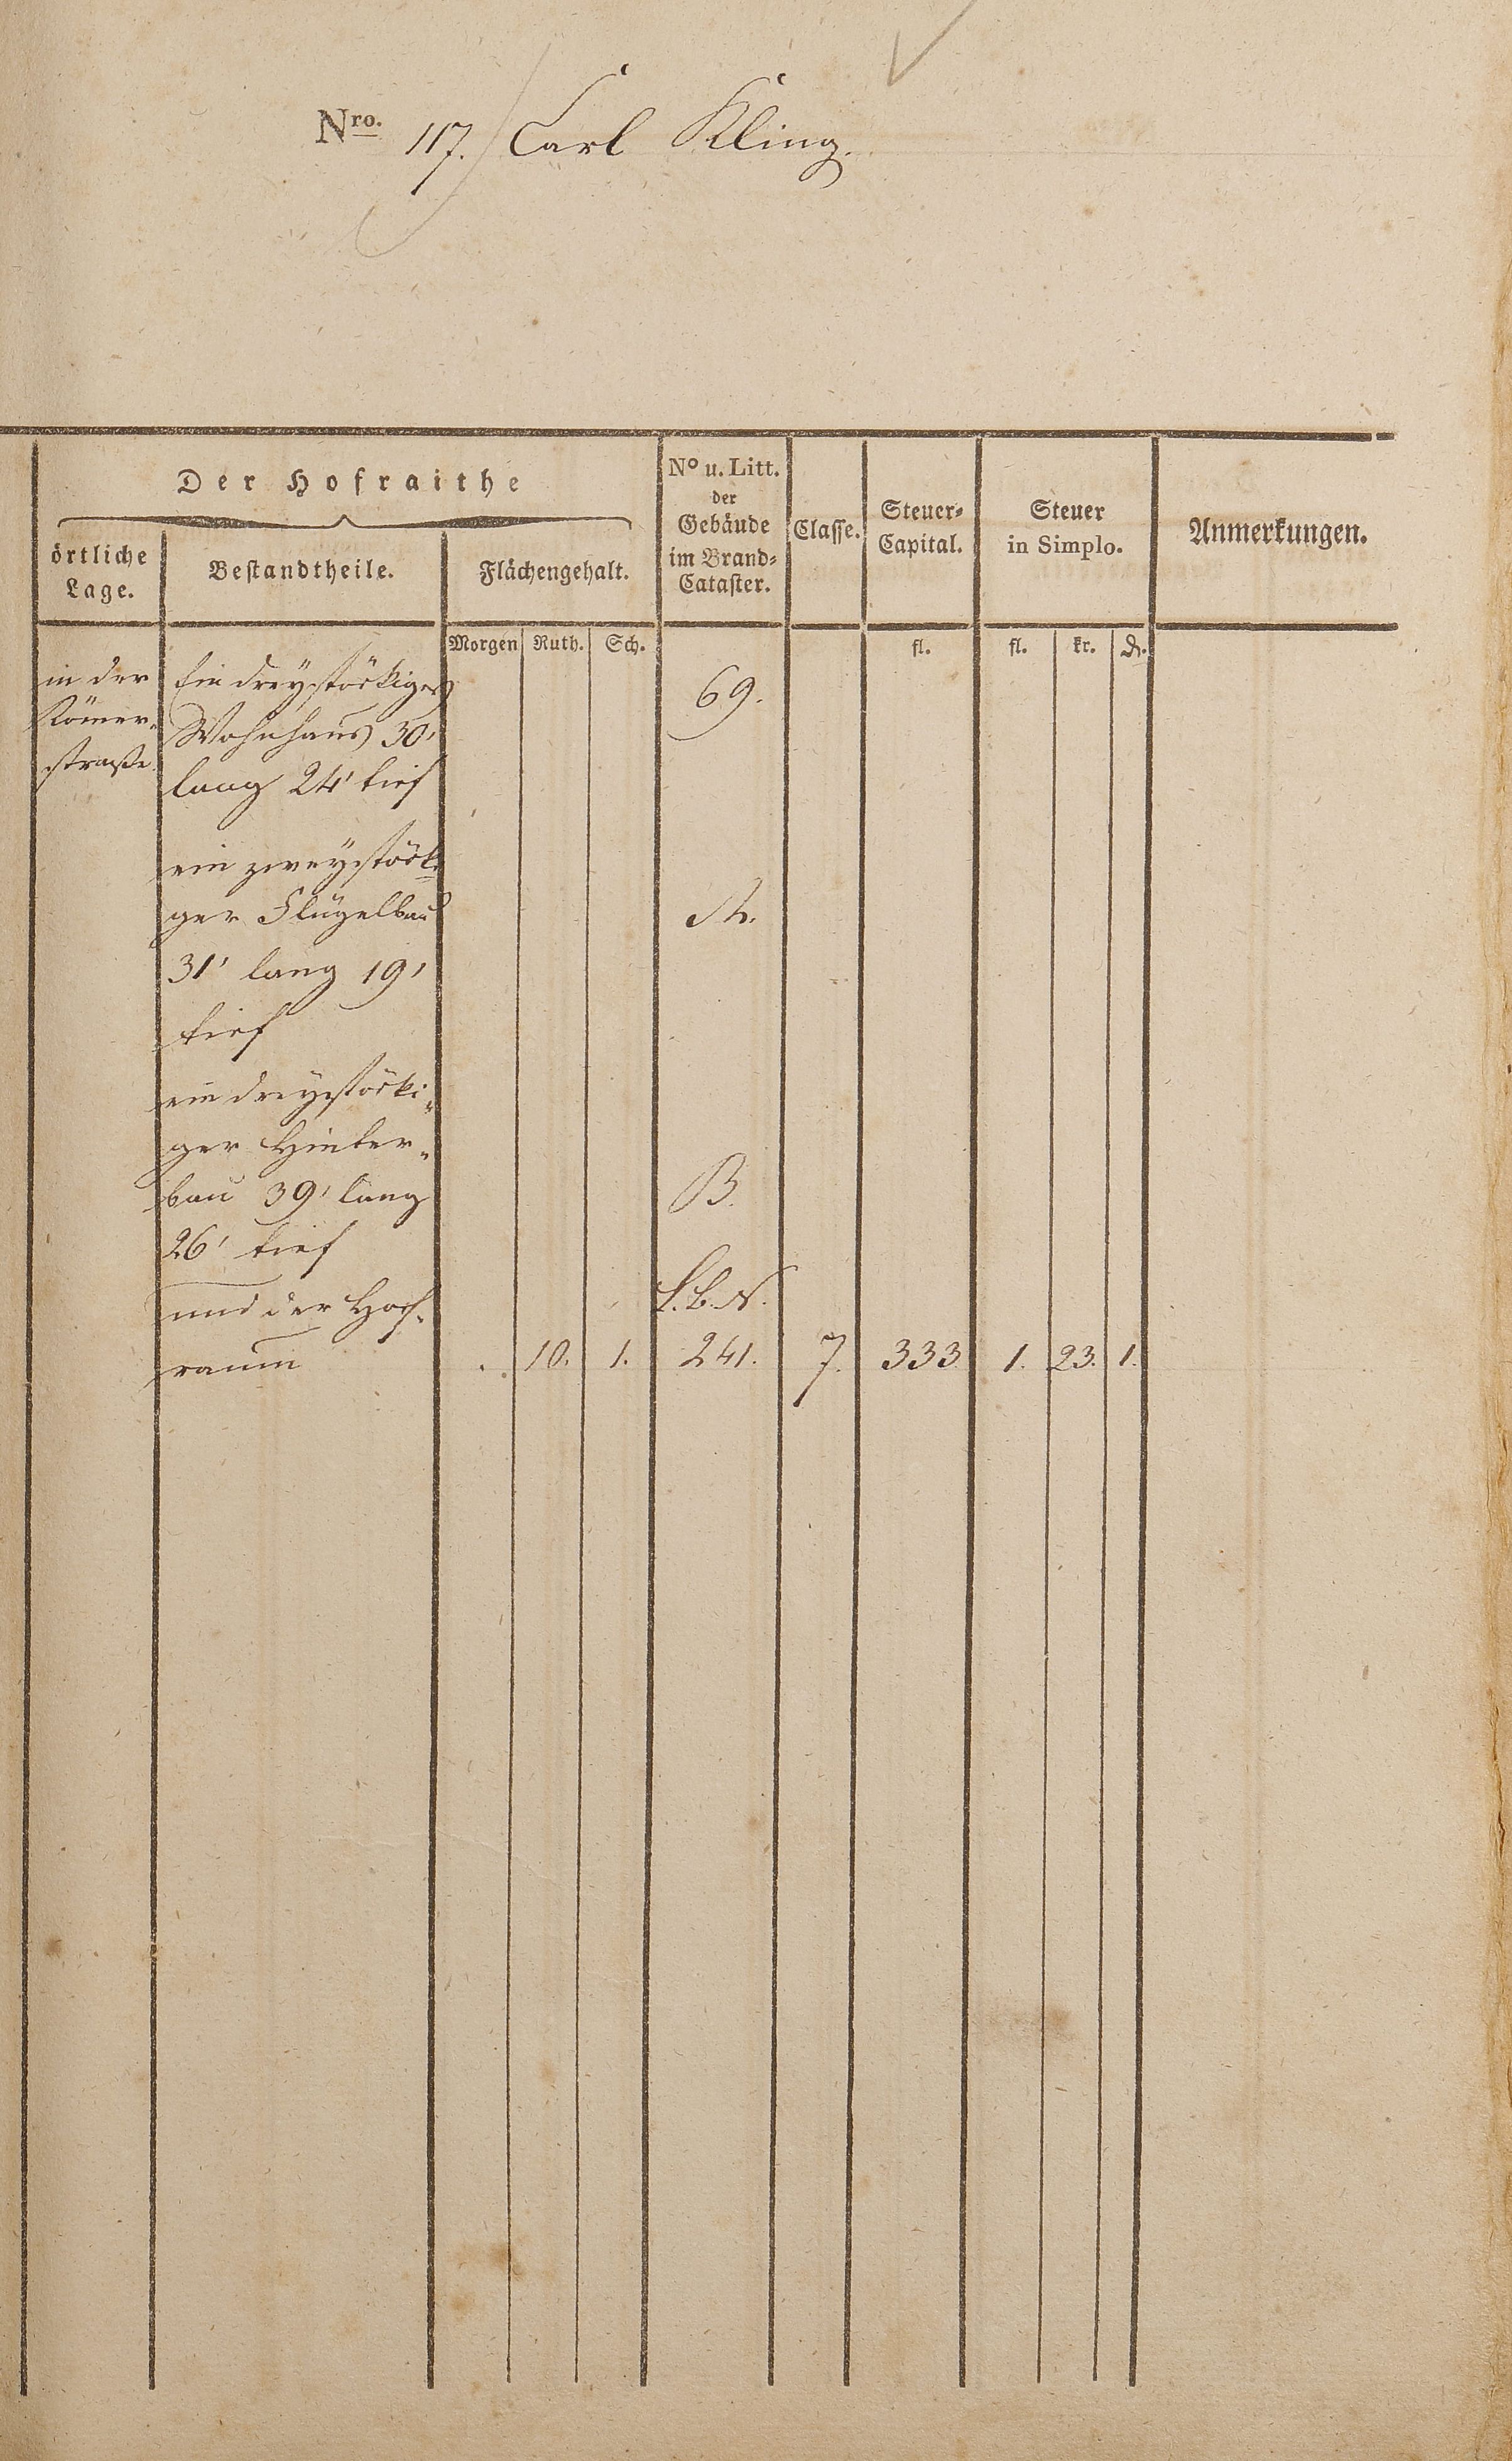 Nro. 117. Carl Kling.
Der Hofraithe
örtliche Lage.
Bestandtheile.
Flächengehalt.
No u. Litt. der Gebäude im Brand-Cataster.
Classe.
Steuer-Capital.
Steuer in Simplo.
Anmerkungen.
Morgen Ruth. Sch. fl. fl. kr. ₰.
in der
Römer-
straße.
Ein dreystöckiges 69.
Wohnhaus 30'
lang 24' tief
ein zweystöcki-
ger Flügelbau A.
31' lang 19'
tief
ein dreystöcki-
ger Hinter-
bau 39' lang B.
26' tief
und der Hof-
raum 10. 1. 241. 7. 333 1. 23. 1.